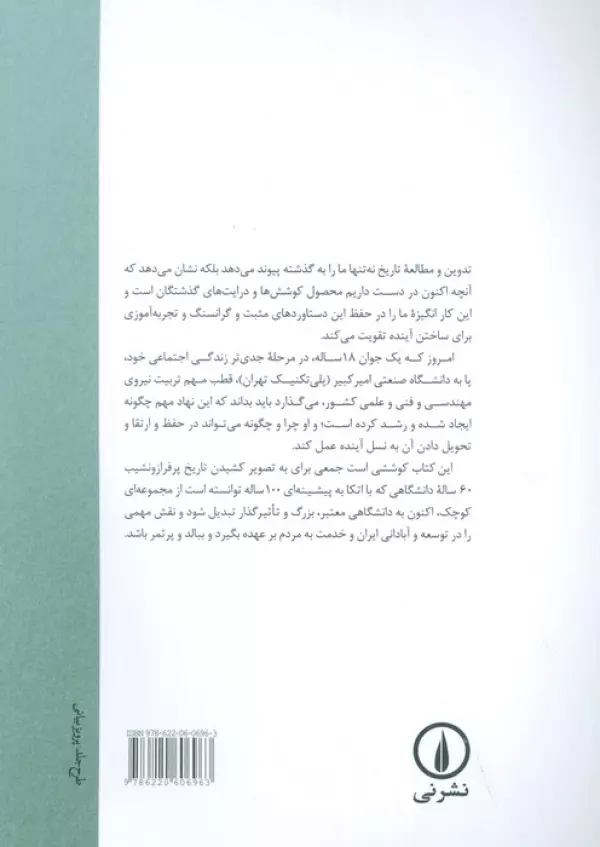 تدوین و مطالعهٔ تاریخ نه‌تنها ما را به گذشته پیوند می‌دهد بلکه نشان می‌دهد که
آنچه اکنون در دست داریم محصول کوشش‌ها و درایت‌های گذشتگان است و
این کار انگیزهٔ ما را در حفظ این دستاوردهای مثبت و گرانسنگ و تجربه‌آموزی
برای ساختن آینده تقویت می‌کند.
امروز که یک جوان ۱۸ساله، در مرحلهٔ جدی‌تر زندگی اجتماعی خود،
پا به دانشگاه صنعتی امیرکبیر (پلی‌تکنیک تهران)، قطب مهم تربیت نیروی
مهندسی و فنی و علمی کشور، می‌گذارد باید بداند که این نهاد مهم چگونه
ایجاد شده و رشد کرده است؛ و او چرا و چگونه می‌تواند در حفظ و ارتقا و
تحویل دادن آن به نسل آینده عمل کند.
این کتاب کوششی است جمعی برای به تصویر کشیدن تاریخ پرفرازونشیب
۶۰ سالهٔ دانشگاهی که با اتکا به پیشینه‌ای ۱۰۰ساله توانسته است از مجموعه‌ای
کوچک، اکنون به دانشگاهی معتبر، بزرگ و تأثیرگذار تبدیل شود و نقش مهمی
را در توسعه و آبادانی ایران و خدمت به مردم بر عهده بگیرد و ببالد و پرثمر باشد.
طرح جلد: پرویز بیانی
ISBN 978-622-06-0696-3
9 786220 606963
نشرنی